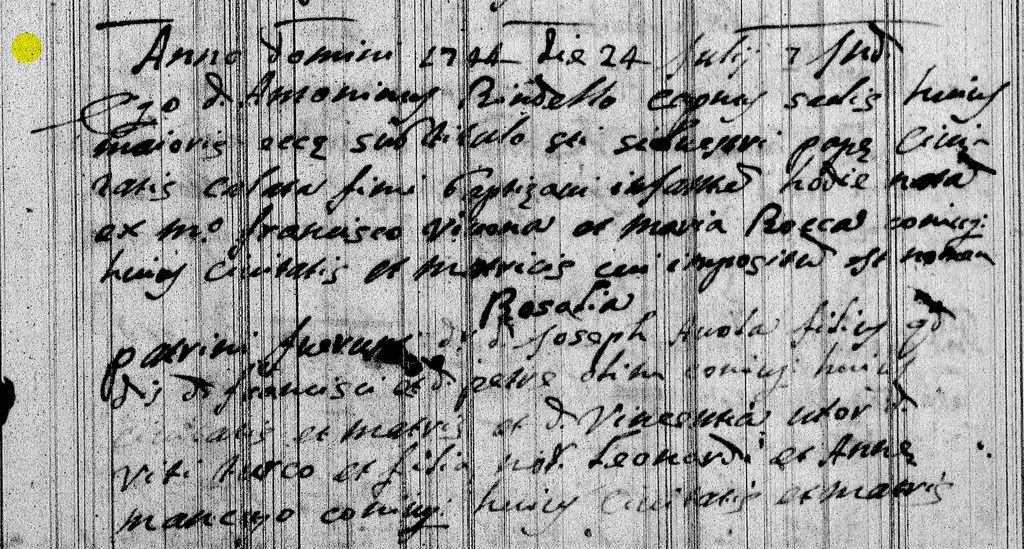 Anno Domini 1744 die 24 Julij 7 Ind
Ego D. Antoninus Rindello capnus sectis huius
maioris ecce sub titulo sti siluestri pape Ciui-
tatis Calata fimi baptizaui infantē hodie natā
ex m.o francisco Vivona et maria Rocca coniug:
huius Civitatis et matricis cui impositū est nomen
Rosalia
patrini fuerunt D. Joseph Auola filius qd
francisci et petre olim coniug huius
civitatis et matris et D. Vincentia uxor D.
Viti turco et filia not. Leonardi et Anne
mancuso coniug: huius Civitatis et matris